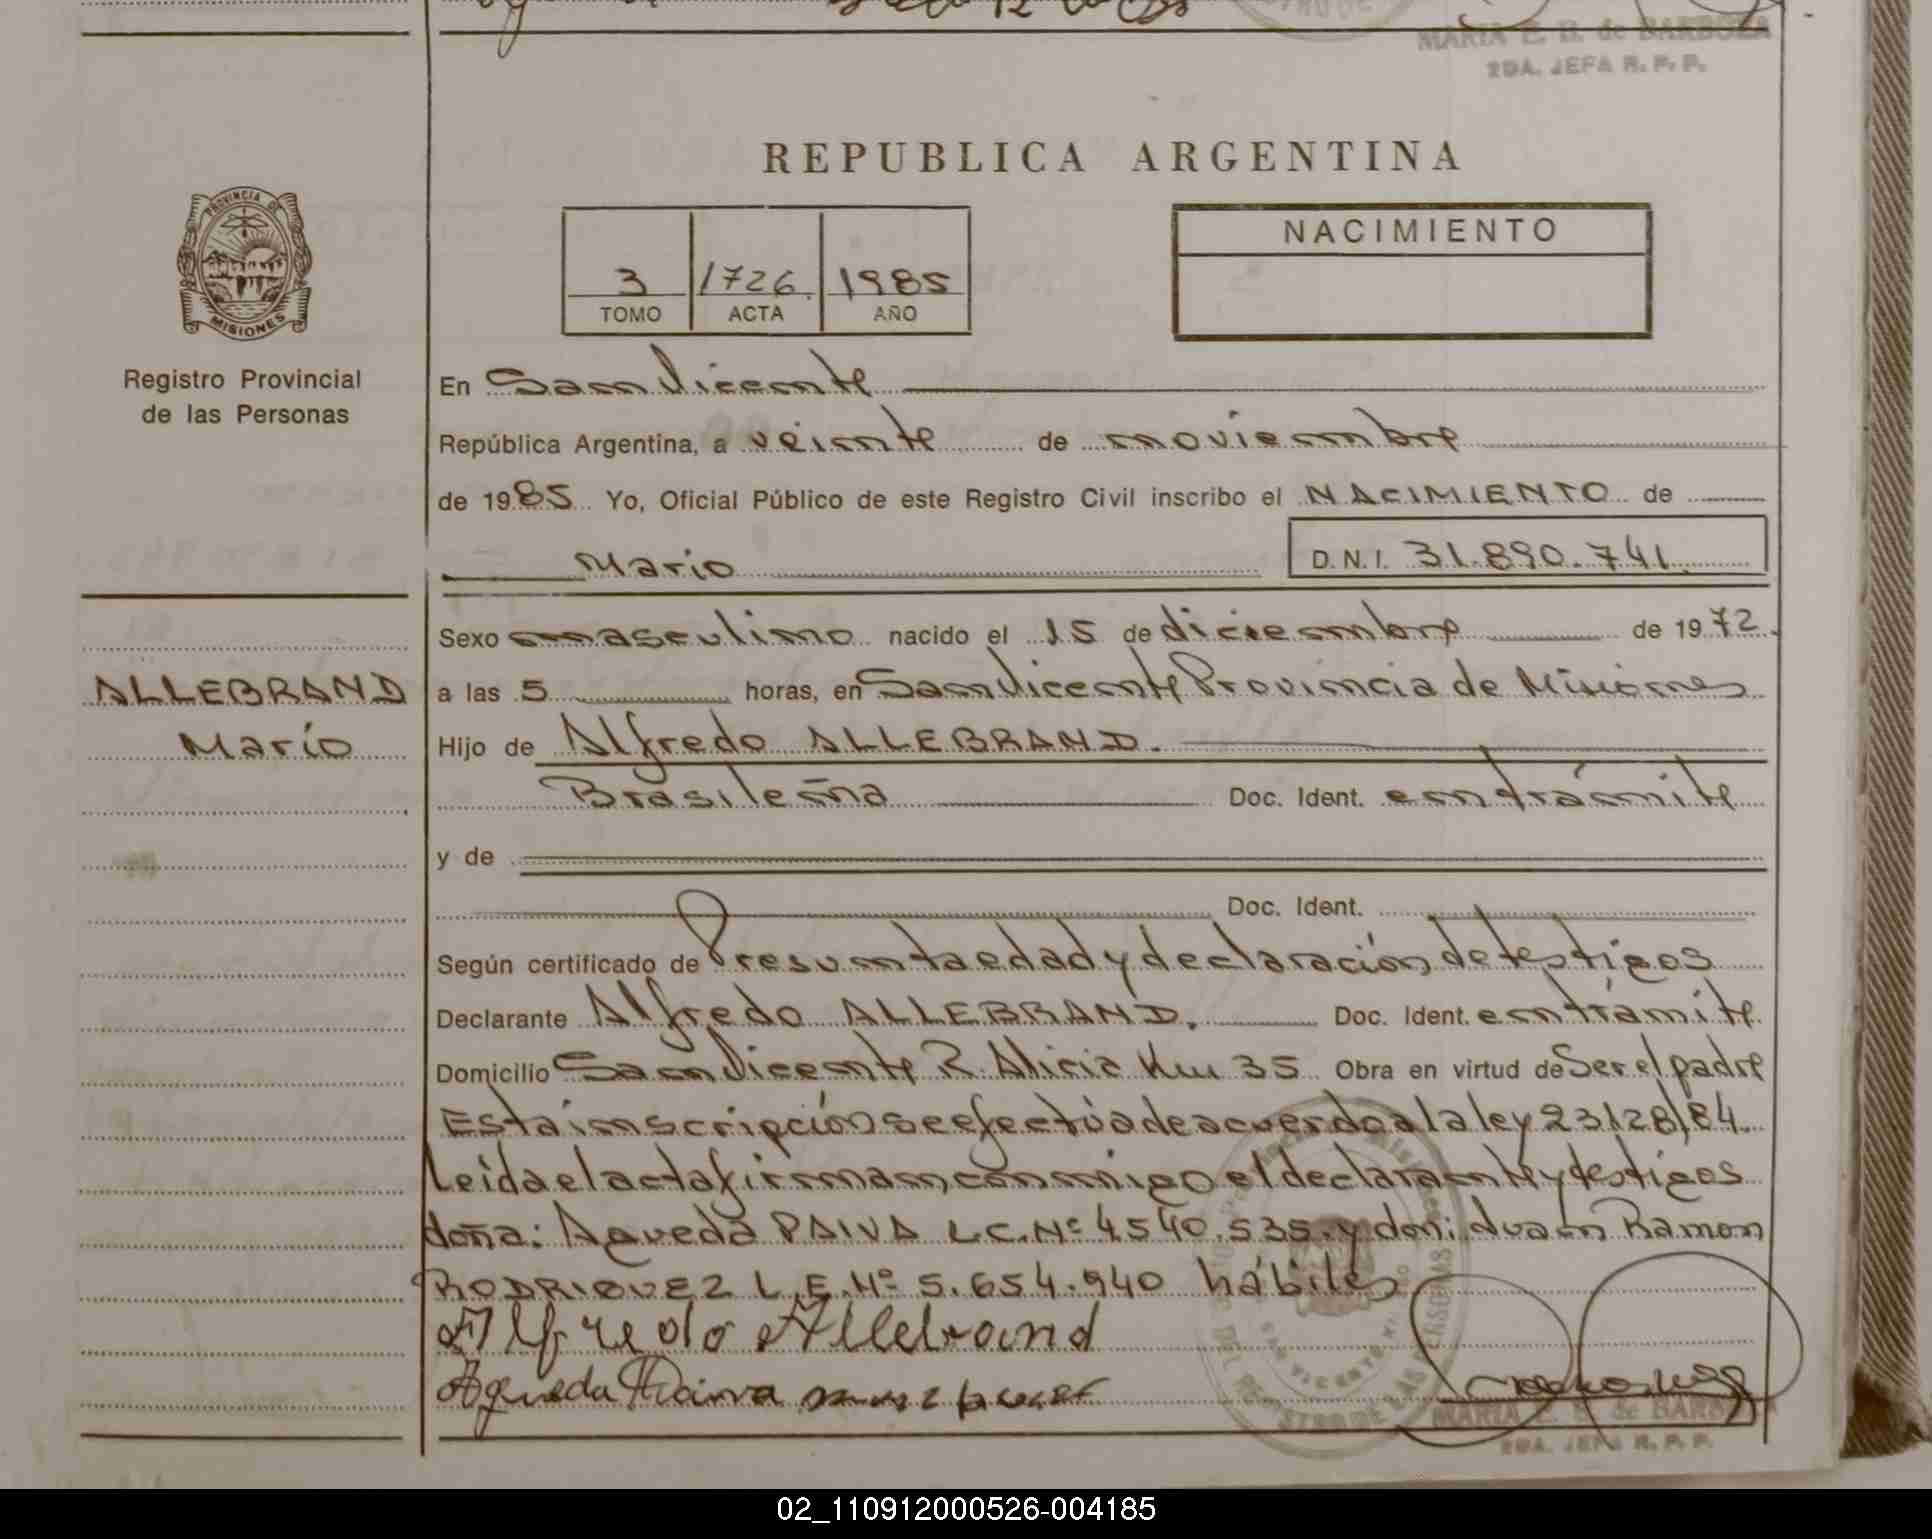 MARIA E. B. de BARBOZA
2DA. JEFA R. P. P.
REPUBLICA ARGENTINA
PROVINCIA DE
MISIONES
Registro Provincial
de las Personas
3 1726. 1985
TOMO ACTA AÑO
NACIMIENTO
En San Vicente
República Argentina, a veinte de noviembre
de 1985 Yo, Oficial Público de este Registro Civil inscribo el NACIMIENTO de
Mario D.N.I. 31.890.741
ALLEBRAND
Mario
Sexo masculino nacido el 15 de diciembre de 1972.
a las 5 horas, en San Vicente Provincia de Misiones
Hijo de Alfredo ALLEBRAND.
Brasileña Doc. Ident. en trámite
y de
Doc. Ident.
Según certificado de Presunta edad y declaración de testigos
Declarante Alfredo ALLEBRAND. Doc. Ident. en trámite
Domicilio San Vicente R. Alicia Km 35 Obra en virtud de Ser el padre
Esta inscripción se efectúa de acuerdo a la ley 23128/84.
Leída el acta firman conmigo el declarante y testigos
doña: Agueda PAIVA L.C. Nº 4.540.535. y don: Juan Ramon
RODRIGUEZ L.E. Nº 5.654.940 hábiles
Alfredo Allebrand
Agueda Paiva
MARIA E. B. de BARBOZA
2DA. JEFA R. P. P.
02_110912000526-004185